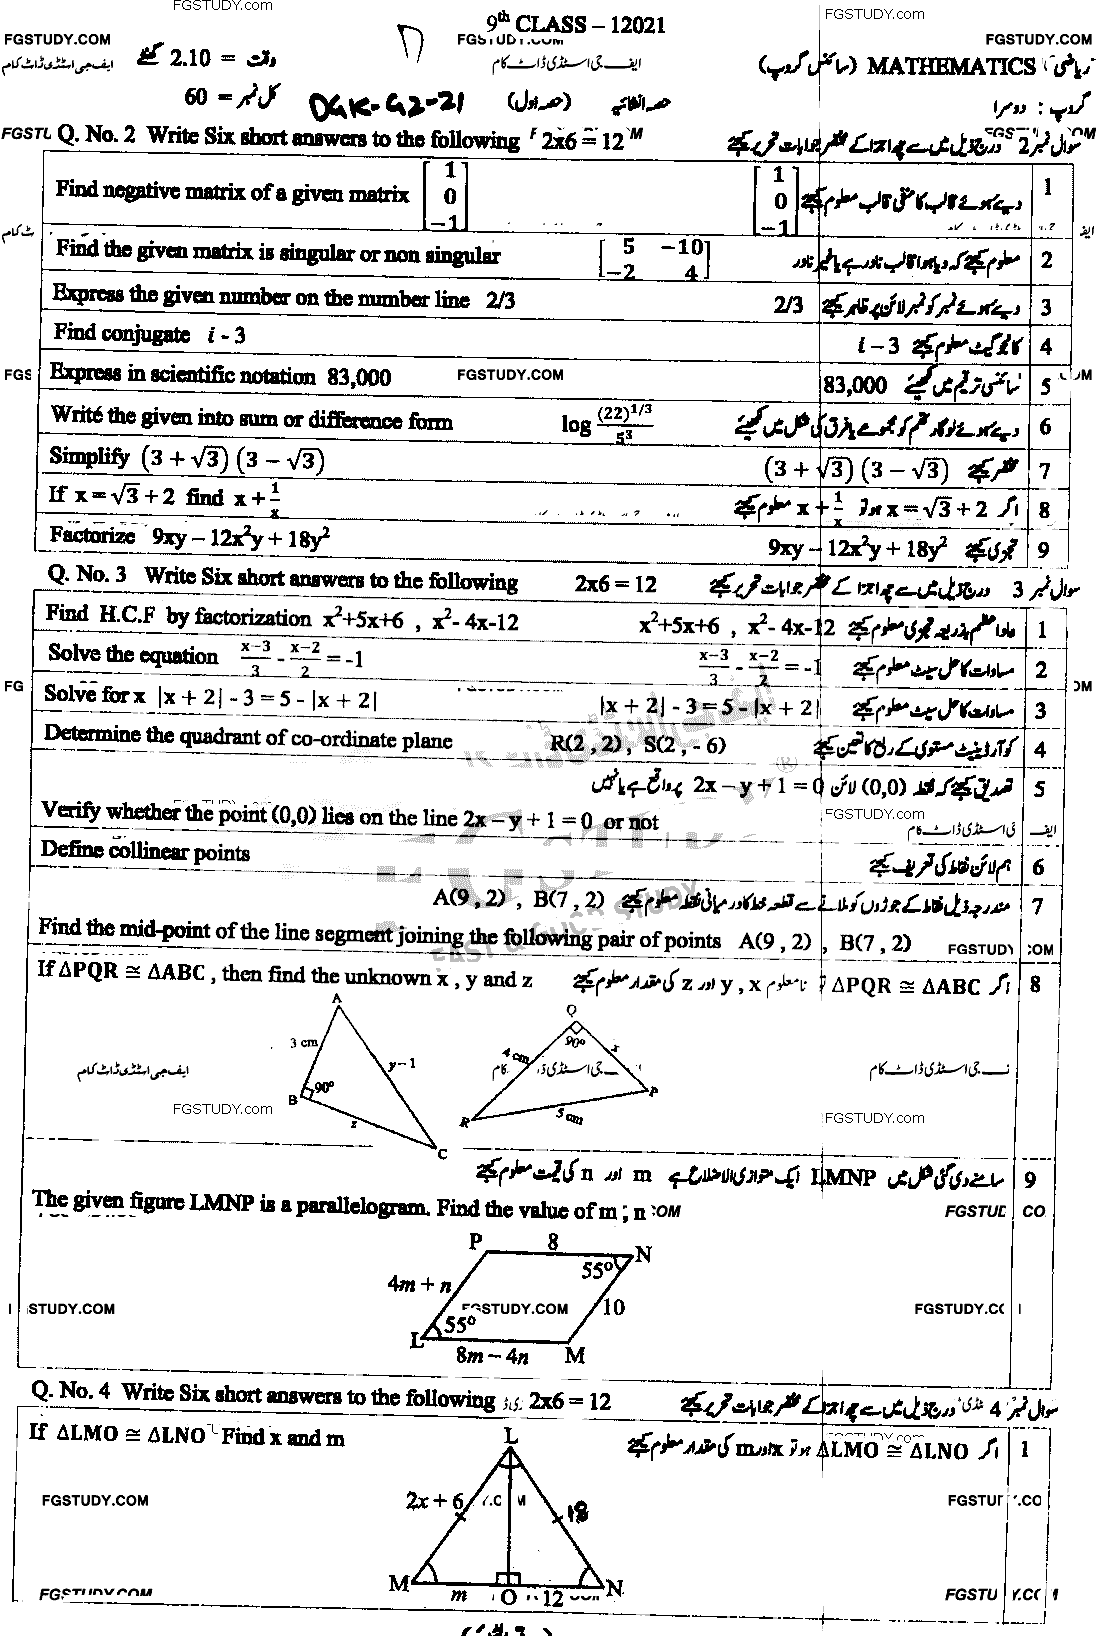 FGSTUDY.COM
9th CLASS – 12021
FGSTUDY.COM
FGSTUDY.COM
FGSTUDY.COM
FGSTUDY.COM
ایف جی اسٹڈی ڈاٹ کام
وقت = 2.10 گھنٹے
ایف جی اسٹڈی ڈاٹ کام
MATHEMATICS (سائنس گروپ) ریاضی
کل نمبر = 60
DGK-G2-21
حصہ انشائیہ (حصہ اول)
گروپ : دوسرا
Q. No. 2 Write Six short answers to the following 2x6 = 12
سوال نمبر 2 درج ذیل میں سے چھ اجزا کے مختصر جوابات تحریر کیجئے
Find negative matrix of a given matrix [1 0 −1]
دیے ہوئے قالب کا منفی قالب معلوم کیجئے [1 0 −1] 1
Find the given matrix is singular or non singular [5 −10 −2 4]
معلوم کیجئے کہ دیا ہوا قالب نادر ہے یا غیر نادر 2
Express the given number on the number line 2/3
دیے ہوئے نمبر کو نمبر لائن پر ظاہر کیجئے 2/3 3
Find conjugate i - 3
کانجوگیٹ معلوم کیجئے i – 3 4
Express in scientific notation 83,000
FGSTUDY.COM
سائنسی ترقیم میں لکھیئے 83,000 5
Write the given into sum or difference form log (22)^1/3 / 5^3
دیے ہوئے لوگارتھم کو مجموعے یا فرق کی شکل میں لکھیئے 6
Simplify (3 + √3) (3 − √3)
مختصر کیجئے (3 + √3) (3 − √3) 7
If x = √3 + 2 find x + 1/x
اگر x = √3 + 2 ہو تو x + 1/x معلوم کیجئے 8
Factorize 9xy – 12x²y + 18y²
تجزی کیجئے 9xy – 12x²y + 18y² 9
Q. No. 3 Write Six short answers to the following 2x6 = 12
سوال نمبر 3 درج ذیل میں سے چھ اجزا کے مختصر جوابات تحریر کیجئے
Find H.C.F by factorization x²+5x+6 , x²- 4x-12
عاداعظم بذریعہ تجزی معلوم کیجئے x²+5x+6 , x²- 4x-12 1
Solve the equation x−3/3 - x−2/2 = -1
مساوات کا حل سیٹ معلوم کیجئے x−3/3 - x−2/2 = -1 2
Solve for x |x + 2| - 3 = 5 - |x + 2|
مساوات کا حل سیٹ معلوم کیجئے |x + 2| - 3 = 5 - |x + 2| 3
Determine the quadrant of co-ordinate plane R(2 , 2), S(2 , - 6)
کوآرڈینیٹ مستوی کے ربع کا تعین کیجئے 4
تصدیق کیجئے کہ نقطہ (0,0) لائن 2x – y + 1 = 0 پر واقع ہے یا نہیں 5
Verify whether the point (0,0) lies on the line 2x – y + 1 = 0 or not
FGSTUDY.com
Define collinear points
ہم لائن نقاط کی تعریف کیجئے 6
مندرجہ ذیل نقاط کے جوڑوں کو ملانے سے قطعہ خط کا درمیانی نقطہ معلوم کیجئے A(9 , 2) , B(7 , 2) 7
Find the mid-point of the line segment joining the following pair of points A(9 , 2) , B(7 , 2)
If ΔPQR ≅ ΔABC , then find the unknown x , y and z
اگر ΔPQR ≅ ΔABC تو نامعلوم x , y اور z کی مقدار معلوم کیجئے 8
A
3 cm
y−1
90°
B
z
C
Q
90°
4 cm
x
P
R
5 cm
ایف جی اسٹڈی ڈاٹ کام
FGSTUDY.com
FGSTUDY.com
سامنے دی گئی شکل میں LMNP ایک متوازی الاضلاع ہے m اور n کی قیمت معلوم کیجئے 9
The given figure LMNP is a parallelogram. Find the value of m ; n
P 8 N
4m + n
55°
10
FGSTUDY.COM
L 55°
8m – 4n M
Q. No. 4 Write Six short answers to the following 2x6 = 12
سوال نمبر 4 درج ذیل میں سے چھ اجزا کے مختصر جوابات تحریر کیجئے
If ΔLMO ≅ ΔLNO Find x and m
اگر ΔLMO ≅ ΔLNO ہو تو x اور m کی مقدار معلوم کیجئے 1
L
FGSTUDY.COM
2x + 6
18
M m O 12 N
FGSTUDY.COM